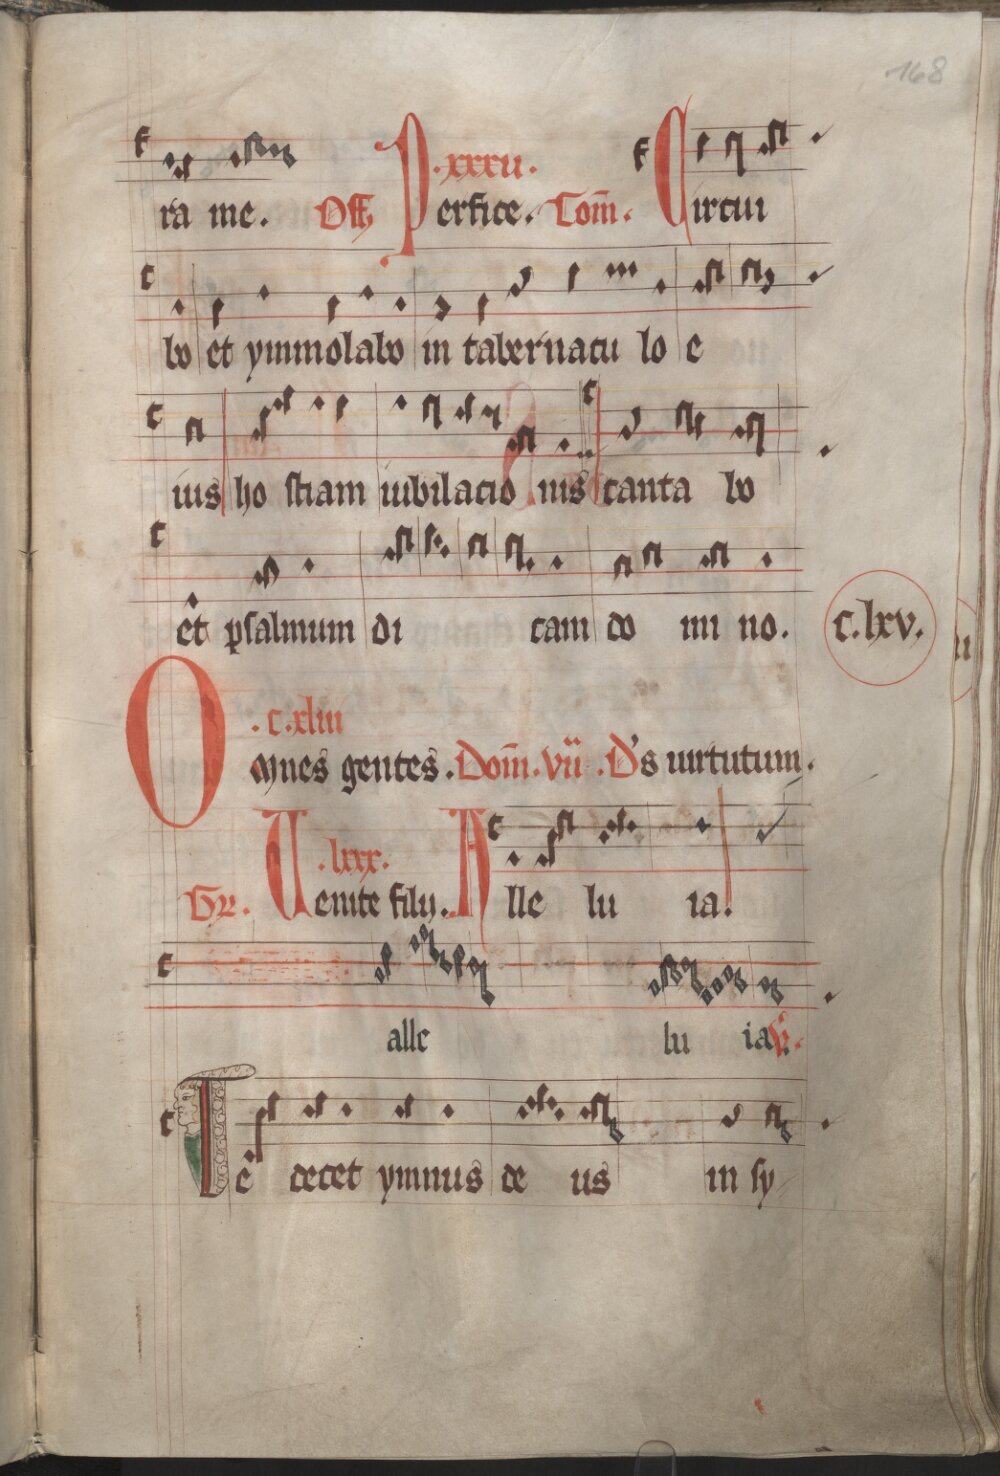 168
.xxxii.
ra me. Off. Perfice. Com̅. Circui
bo et ymmolabo in tabernacu lo e
ius ho stiam iubilacio nis canta bo
et psalmum di cam do mi no. c.lxv.
.c.xliii
Omnes gentes. Dom̅. vii. D's uirtutum.
.lxxx.
Gr. Venite filii. Alle lu ia.
alle lu ia. V.
Te decet ymnus de us in sy